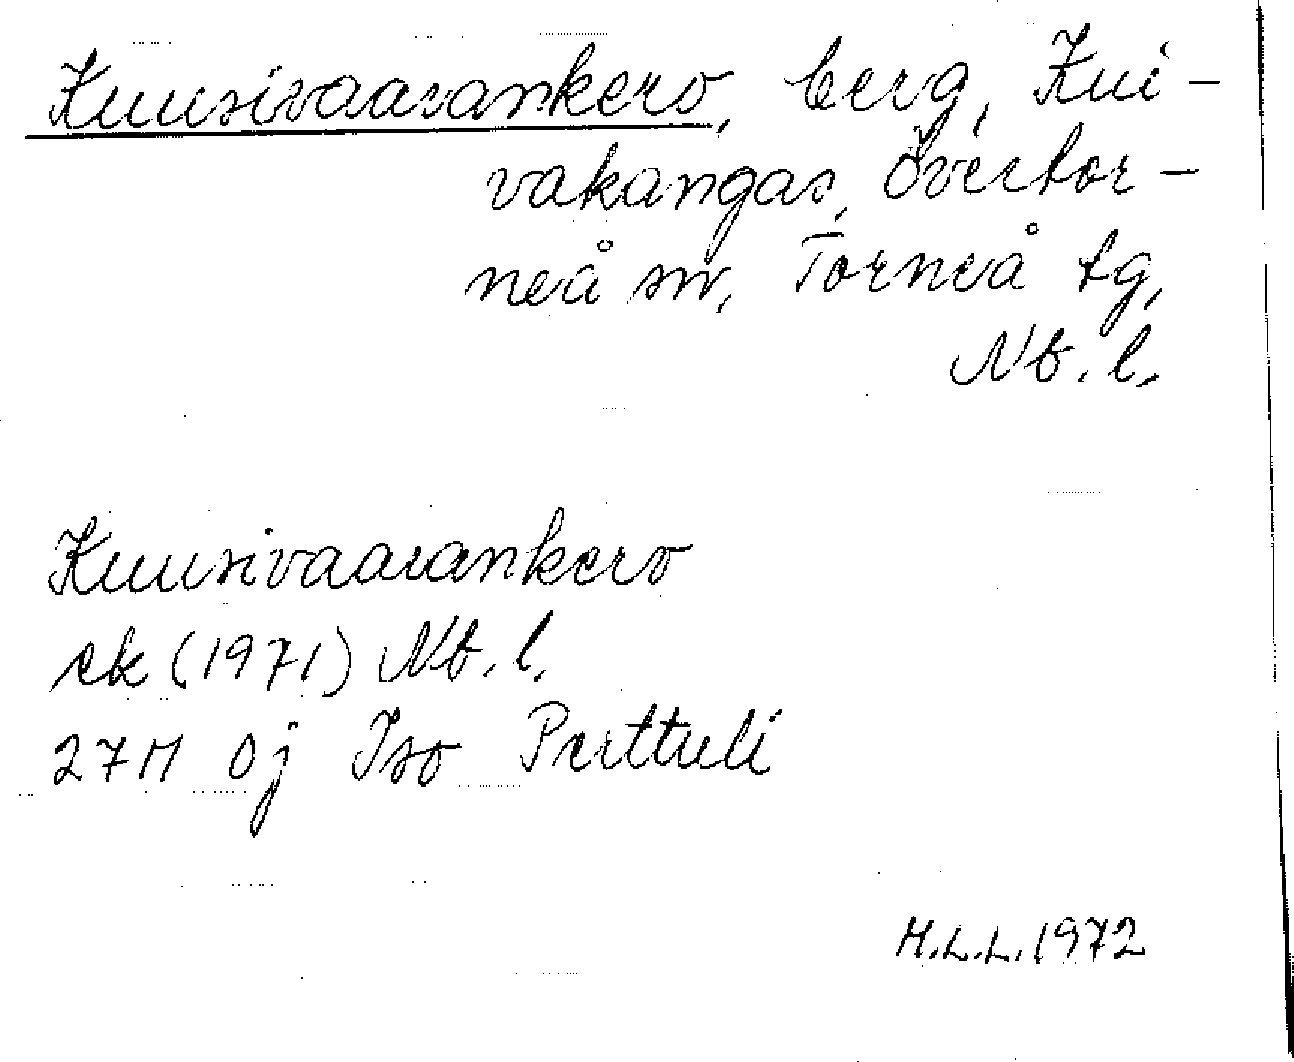 Kuusivaarankero, berg, Kui-
vakangas, Övertor-
neå sn, Torneå tg,
Nb. l.
Kuusivaarankero
ek (1971) Nb. l.
27M 0j Iso Perttuli
M.L.L. 1972